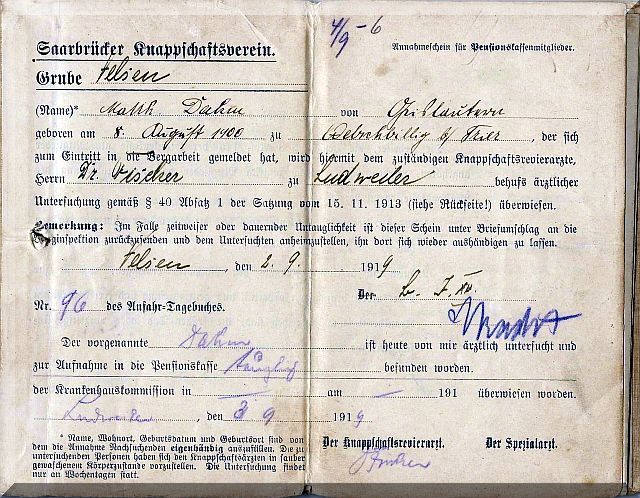 4/9 - 6
Saarbrücker Knappschaftsverein.
Annahmeschein für Pensionskassenmitglieder.
Grube Velsen
(Name)* Matth Dahm von Geislautern
geboren am 8. August 1900 zu Welschbillig b/ Trier, der sich
zum Eintritt in die Bergarbeit gemeldet hat, wird hiermit dem zuständigen Knappschaftsrevierarzte,
Herrn Dr. Füscher zu Ludweiler behufs ärztlicher
Untersuchung gemäß § 40 Absatz 1 der Satzung vom 15. 11. 1913 (siehe Rückseite!) überwiesen.
Bemerkung: Im Falle zeitweiser oder dauernder Untauglichkeit ist dieser Schein unter Briefumschlag an die
Berginspektion zurückzusenden und dem Untersuchten anheimzustellen, ihn dort sich wieder aushändigen zu lassen.
Velsen, den 2. 9. 1919
Der
Nr. 96 des Anfahr-Tagebuches.
Der vorgenannte Dahm ist heute von mir ärztlich untersucht und
zur Aufnahme in die Pensionskasse tauglich befunden worden.
der Krankenhauskommission in — am — 191 überwiesen worden.
Ludweiler, den 3 9 1919
* Name, Wohnort, Geburtsdatum und Geburtsort sind von
dem die Annahme Nachsuchenden eigenhändig auszufüllen. Die zu
untersuchenden Personen haben sich den Knappschaftsärzten in sauber
gewaschenem Körperzustande vorzustellen. Die Untersuchung findet
nur an Wochentagen statt.
Der Knappschaftsrevierarzt. Der Spezialarzt.